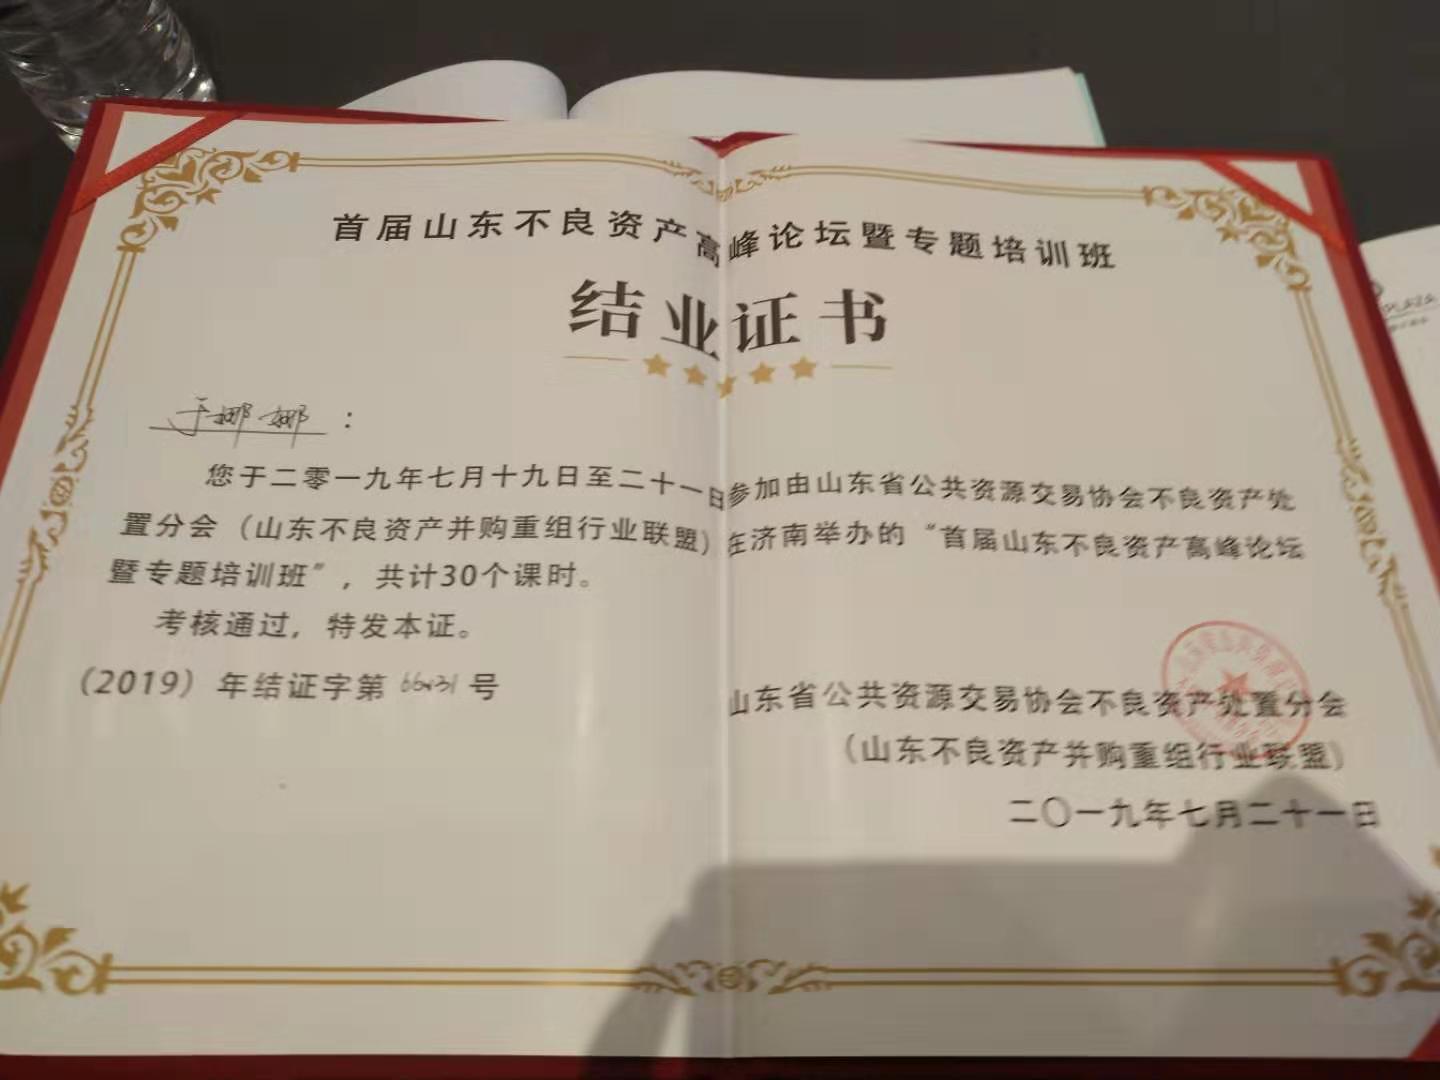 首届山东不良资产高峰论坛暨专题培训班
结业证书
于娜娜：
您于二零一九年七月十九日至二十一日参加由山东省公共资源交易协会不良资产处
置分会（山东不良资产并购重组行业联盟）在济南举办的“首届山东不良资产高峰论坛
暨专题培训班”，共计30个课时。
考核通过，特发本证。
（2019）年结证字第 号
山东省公共资源交易协会不良资产处置分会
（山东不良资产并购重组行业联盟）
二〇一九年七月二十一日
PLAZA